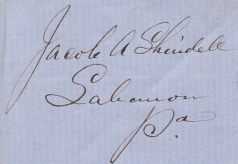 Jacob A Shindell
Lebanon
Pa